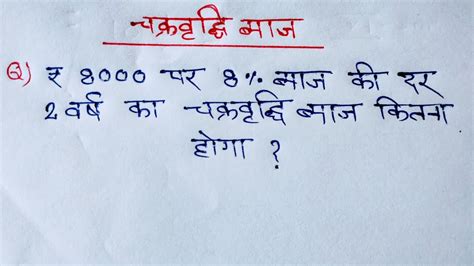 चक्रवृद्धि ब्याज
Q) ₹ 8000 पर 8% ब्याज की दर
2 वर्ष का चक्रवृद्धि ब्याज कितना
होगा ?